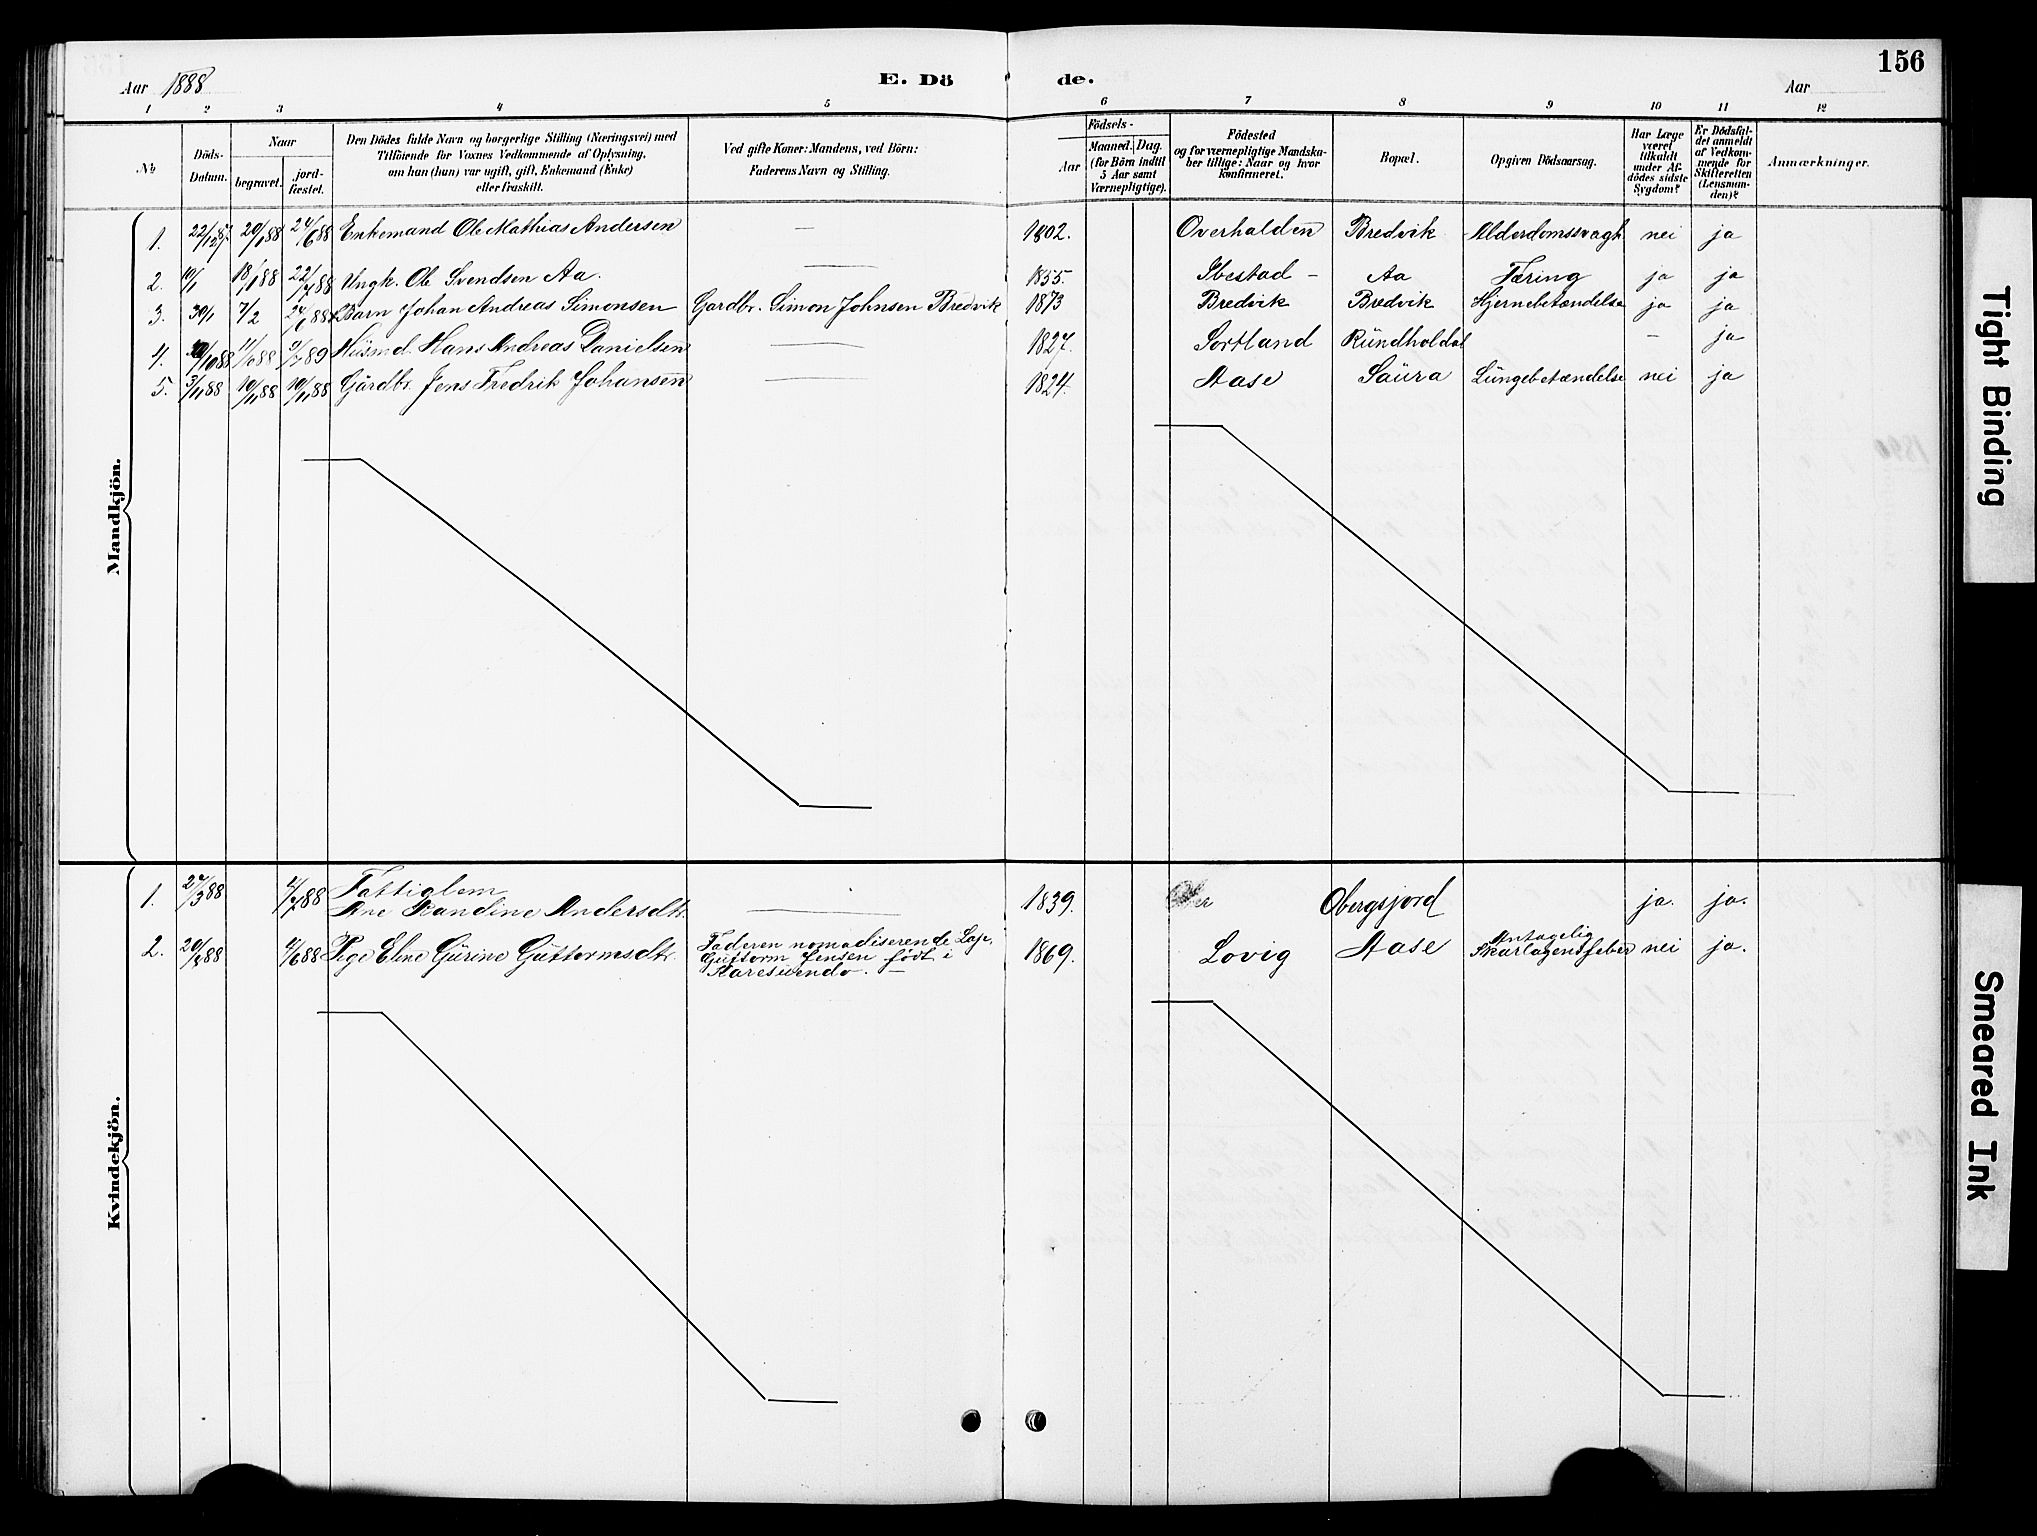 156
Aar 1888
E. Dö de.
Aar
1 2 3 4 5 6 7 8 9 10 11 12
No
Döds-Datum.
Naar
begravet.
jord-fæstet.
Den Dödes fulde Navn og borgerlige Stilling (Næringsvei) med
Tilföiende for Voxnes Vedkommende af Oplysning,
om han (hun) var ugift, gift, Enkemand (Enke)
eller fraskilt.
Ved gifte Koner: Mandens, ved Börn:
Faderens Navn og Stilling.
Födsels-
Aar
Maaned. Dag.
(for Börn indtil
5 Aar samt
Værnepligtige).
Födested
og for værnepligtige Mandska-
ber tillige: Naar og hvor
konfirmeret.
Bopæl.
Opgiven Dödsaarsag.
Har Læge
været
tilkaldt
under Af-
dödes sidste
Sygdom?
Er Dödsfal-
det anmeldt
af Vedkom-
mende for
Skifteretten
(Lensman-
den)?
Anmærkninger.
Mandkjön.
1. 22/12 87 20/1 88 24/6 88 Enkemand Ole Mathias Andersen — 1802. Overhalden Bredvik Alderdomssvagh. nei ja
2. 10/1 18/1 88 22/7 88 Ungk. Ole Svendsen Aa. — 1855. Ibestad – Aa Tæring ja ja
3. 30/1 7/2 24/6 88 Barn Johan Andreas Simonsen Gardbr. Simon Johnsen Bredvik 1873 Bredvik Bredvik Hjernebetændelse ja ja
4. /10 88 88 89 Husmd. Hans Andreas Danielsen — 1827. Sortland Rundholdat – ja
5. 3/11 88 10/11 88 10/11 88 Gårdbr. Jens Fredrik Johansen — 1824. Aase Saura Lungebetændelse nei ja
Kvindekjön.
1. 27/3 88 88 Fattiglem
Ane Randine Andersdtr. — 1839. Obergsjord ja. ja.
2. 20/ 88 /6 88 Pige Eline Gurine Guttormsdtr. Faderen nomadiserende Lap,
Guttorm Jensen født i
Karesuendo. – 1869. Lovig Aase Antagelig
Skarlagensfeber nei ja.
Tight Binding
Smeared Ink